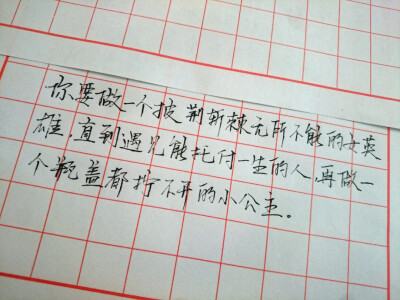 你要做一个披荆斩棘无所不能的女英
雄,直到遇见能托付一生的人,再做一
个瓶盖都拧不开的小公主。